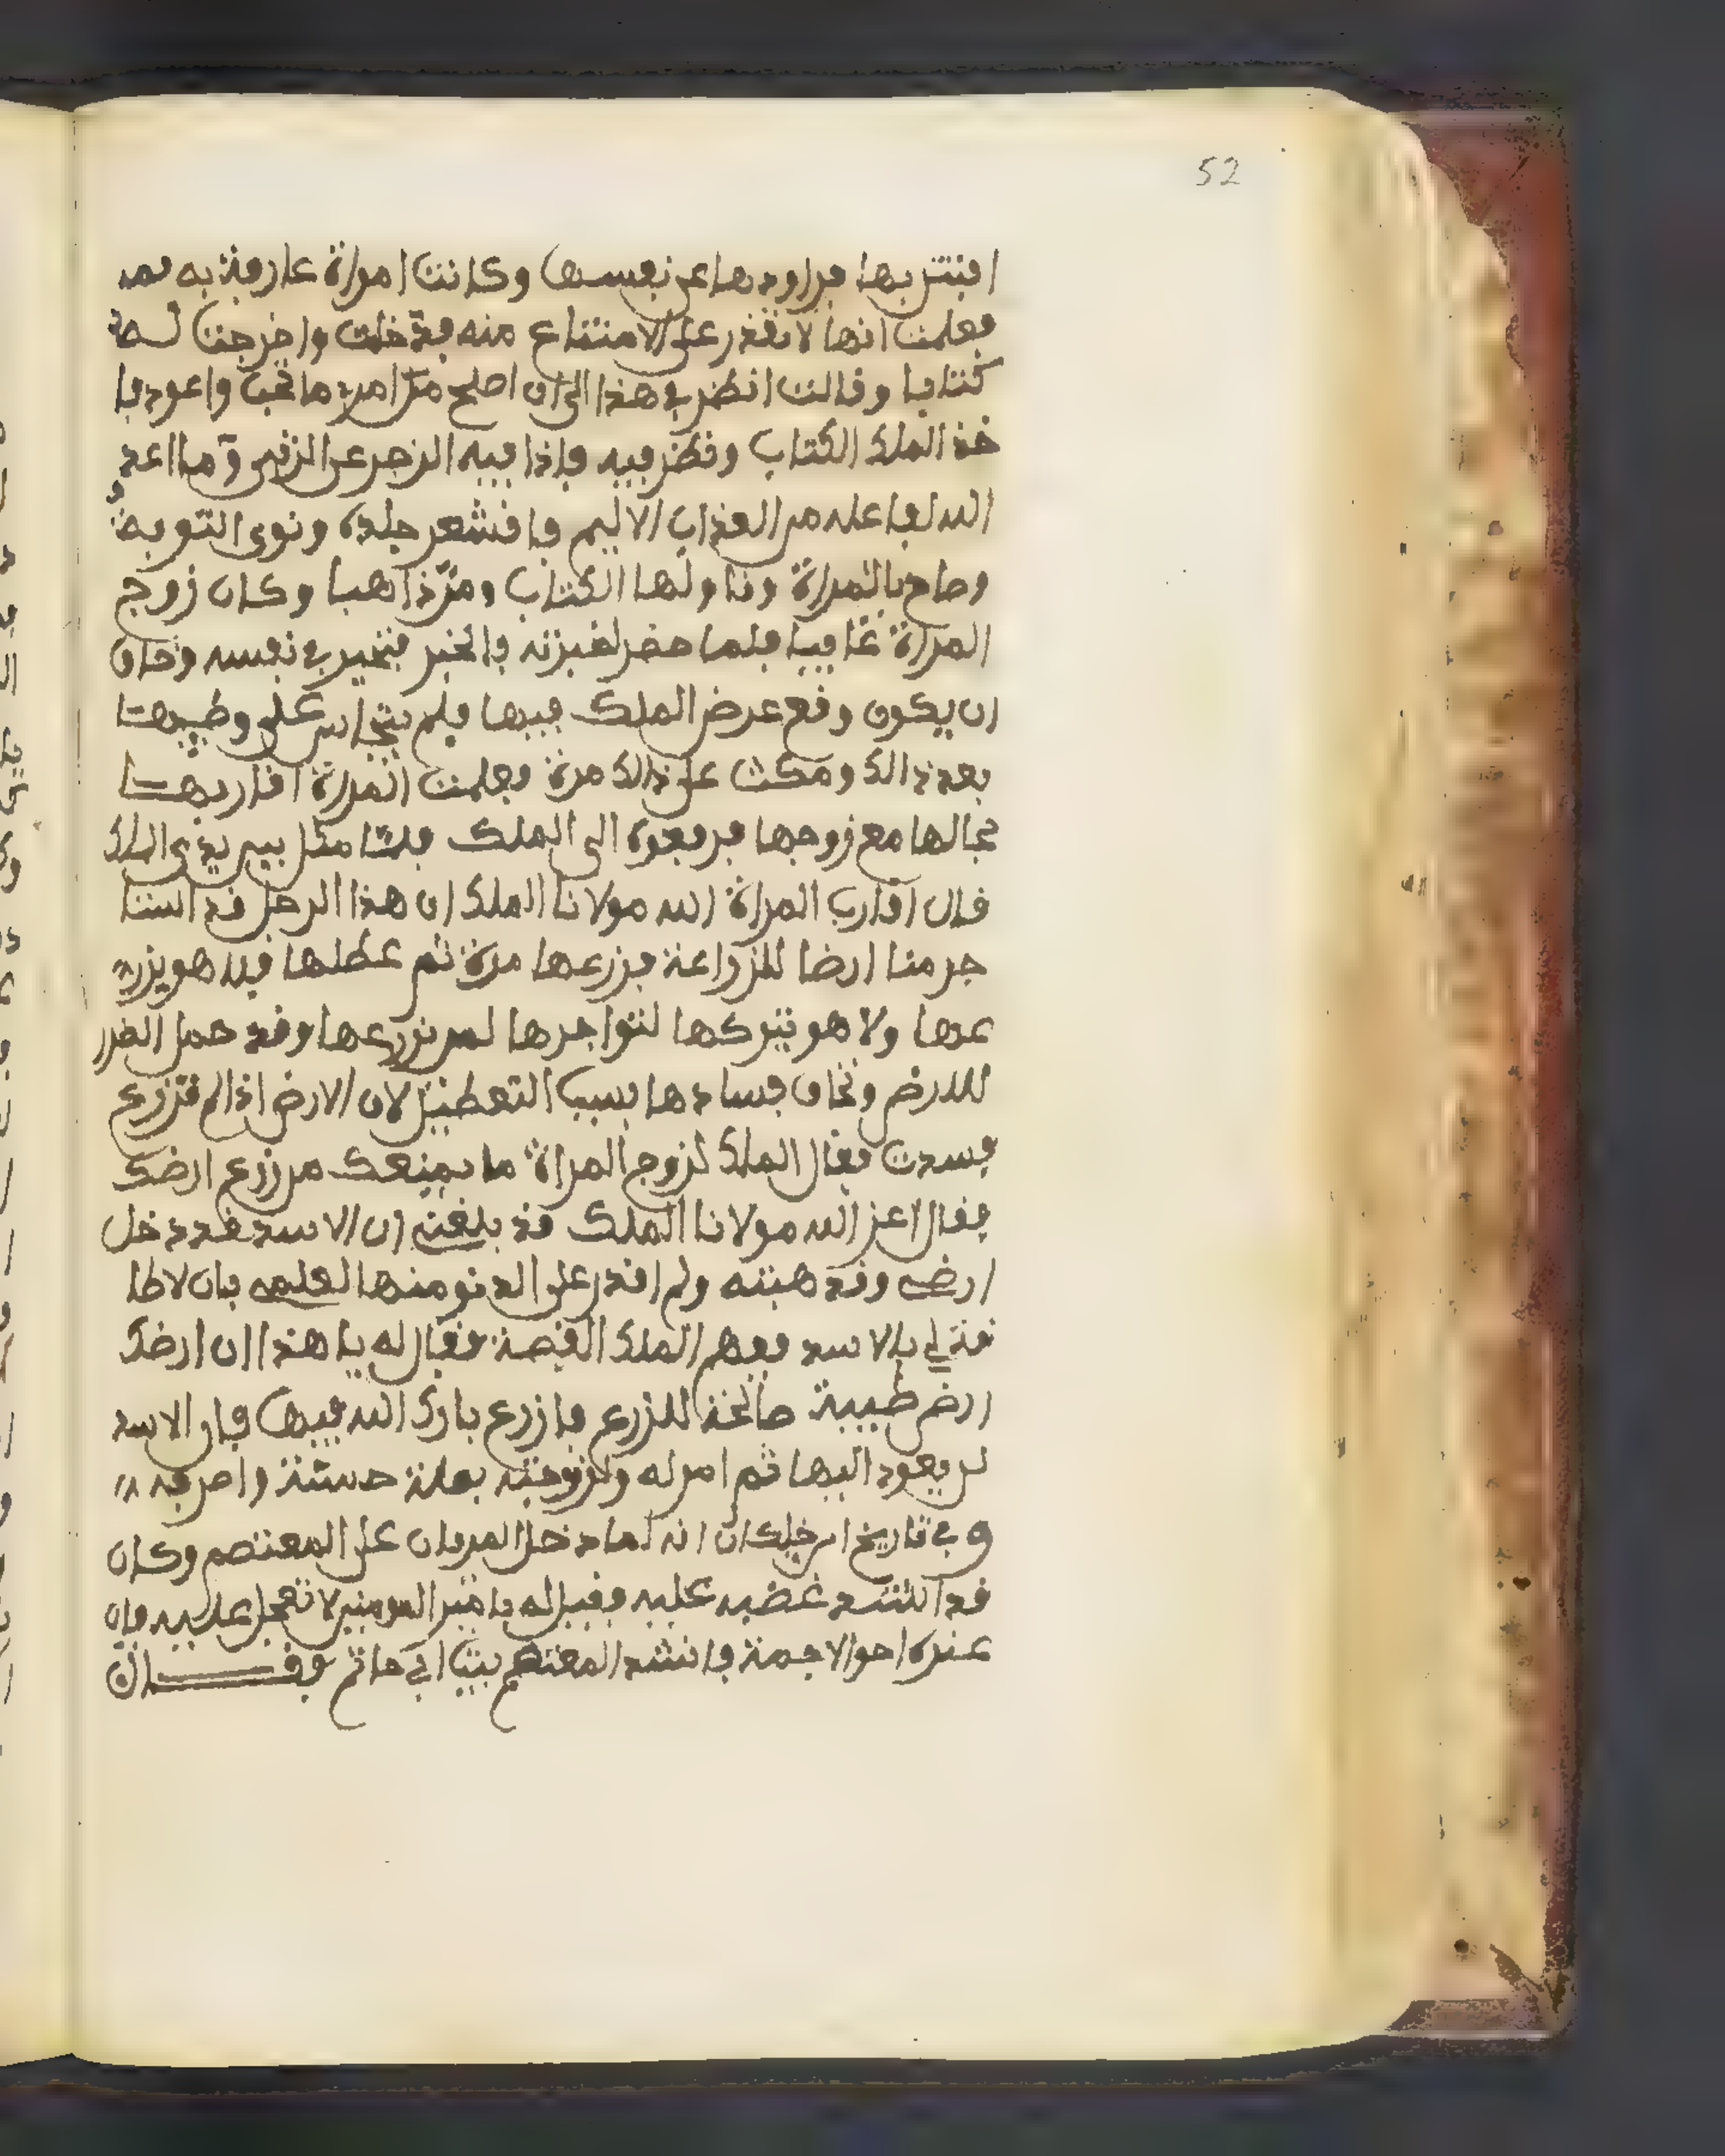 52
افتتن بها فراودها عن نفسها وكانت امراة عارفة به
فعلمت انها لا تقدر على الامتناع منه فدخلت واخرجت له
كتابا وقالت انظر في هذا الى ان اصلح من امري ما تحب واعود فا
خذ الملك الكتاب ونظر فيه فاذا فيه الزجر عن الزنى وما اعد
الله تعا عليه من العذاب الاليم فاقشعر جلده ونوى التوبة
وصاح بالمراة وناولها الكتاب ومر ذاهبا وكان زوج
المراة غايبا فلما حضر اخبرته بالخبر فتحير في نفسه وخاف
ان يكون وقع غرض الملك فيها فلم يتجاسر على وطيها
بعد ذالك ومكث على ذالك مدة فعلمت المراة اقاربها
بحالها مع زوجها فرفعوه الى الملك فلما مثل بين يدي الملك
قال اقارب المراة الله مولانا الملك ان هذا الرجل قد استا
جر منا ارضا للزراعة فزرعها مدة ثم عطلها فلا هو يزر
عها ولا هو يتركها لنواجرها لمن يزرعها وقد حصل الضرر
للارض ونخاف فسادها بسبب التعطيل لان الارض اذا لم تزرع
فسدت فقال الملك لزوج المراة ما يمنعك من زرع ارضك
فقال اعز الله مولانا الملك قد بلغني ان الاسد قد دخل
ارضي وقد هبته ولم اقدر على الدنو منها لعلمي بان لا طا
قة لي بالاسد ففهم الملك القصة فقال له يا هذا ان ارضك
ارض طيبة صالحة للزرع فازرع بارك الله فيها فان الاسد
لن يعود اليها ثم امر له ولزوجته بصلة حسنة واصرفه
وفي تاريخ ابن خلكان انه لما دخل المزيان على المعتصم وكان
قد اشتد غضبه عليه فقيل له يا مير المومنين لا تعجل عليه فان
عنده احوالا جمة فانشد المعتصم بيتا ابي حاتم فقال